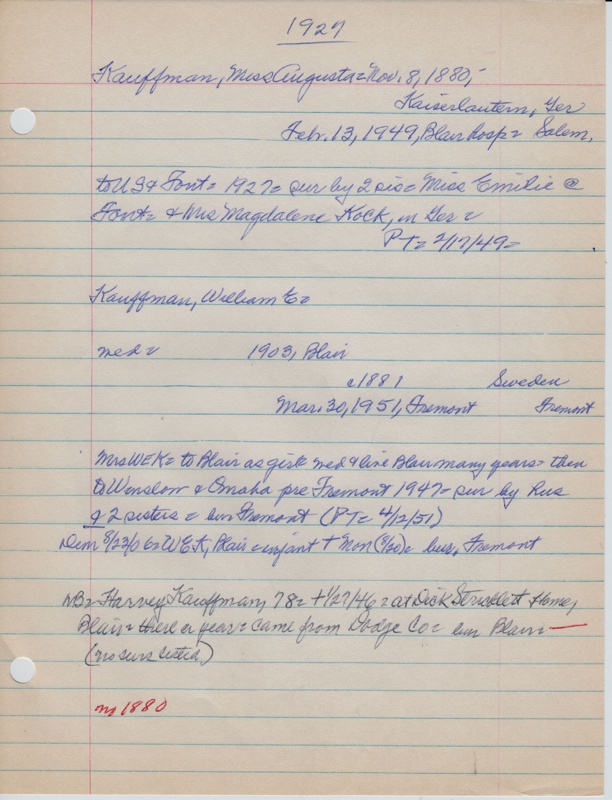 1927
Kauffman, Miss Augusta = Nov. 8, 1880,
Kaiserlautern, Ger
Febr. 13, 1949, Blair hosp = Salem,
to US & Font = 1927 = sur by 2 sis = Miss Emilie @
Font = & Mrs Magdalene Kock, in Ger =
PT = 2/17/49 =
Kauffman, William E =
med = 1903, Blair
c1881 Sweden
Mar. 30, 1951, Fremont Fremont
Mrs WEK = to Blair as girl = med & live Blair many years = then
to Winslow & Omaha pre Fremont 1947 = sur by Rus
& 2 sisters = bur Fremont (PT = 4/12/51)
Dem 8/23/06 = WEK, Blair = infant + Mon (8/20) = bur, Fremont
NB = Harvey Kauffman, 78 = + 1/27/46 = at Dick Stricklett Home,
Blair = there a year = came from Dodge Co = bur Blair =
(no surs listed)
m 1880